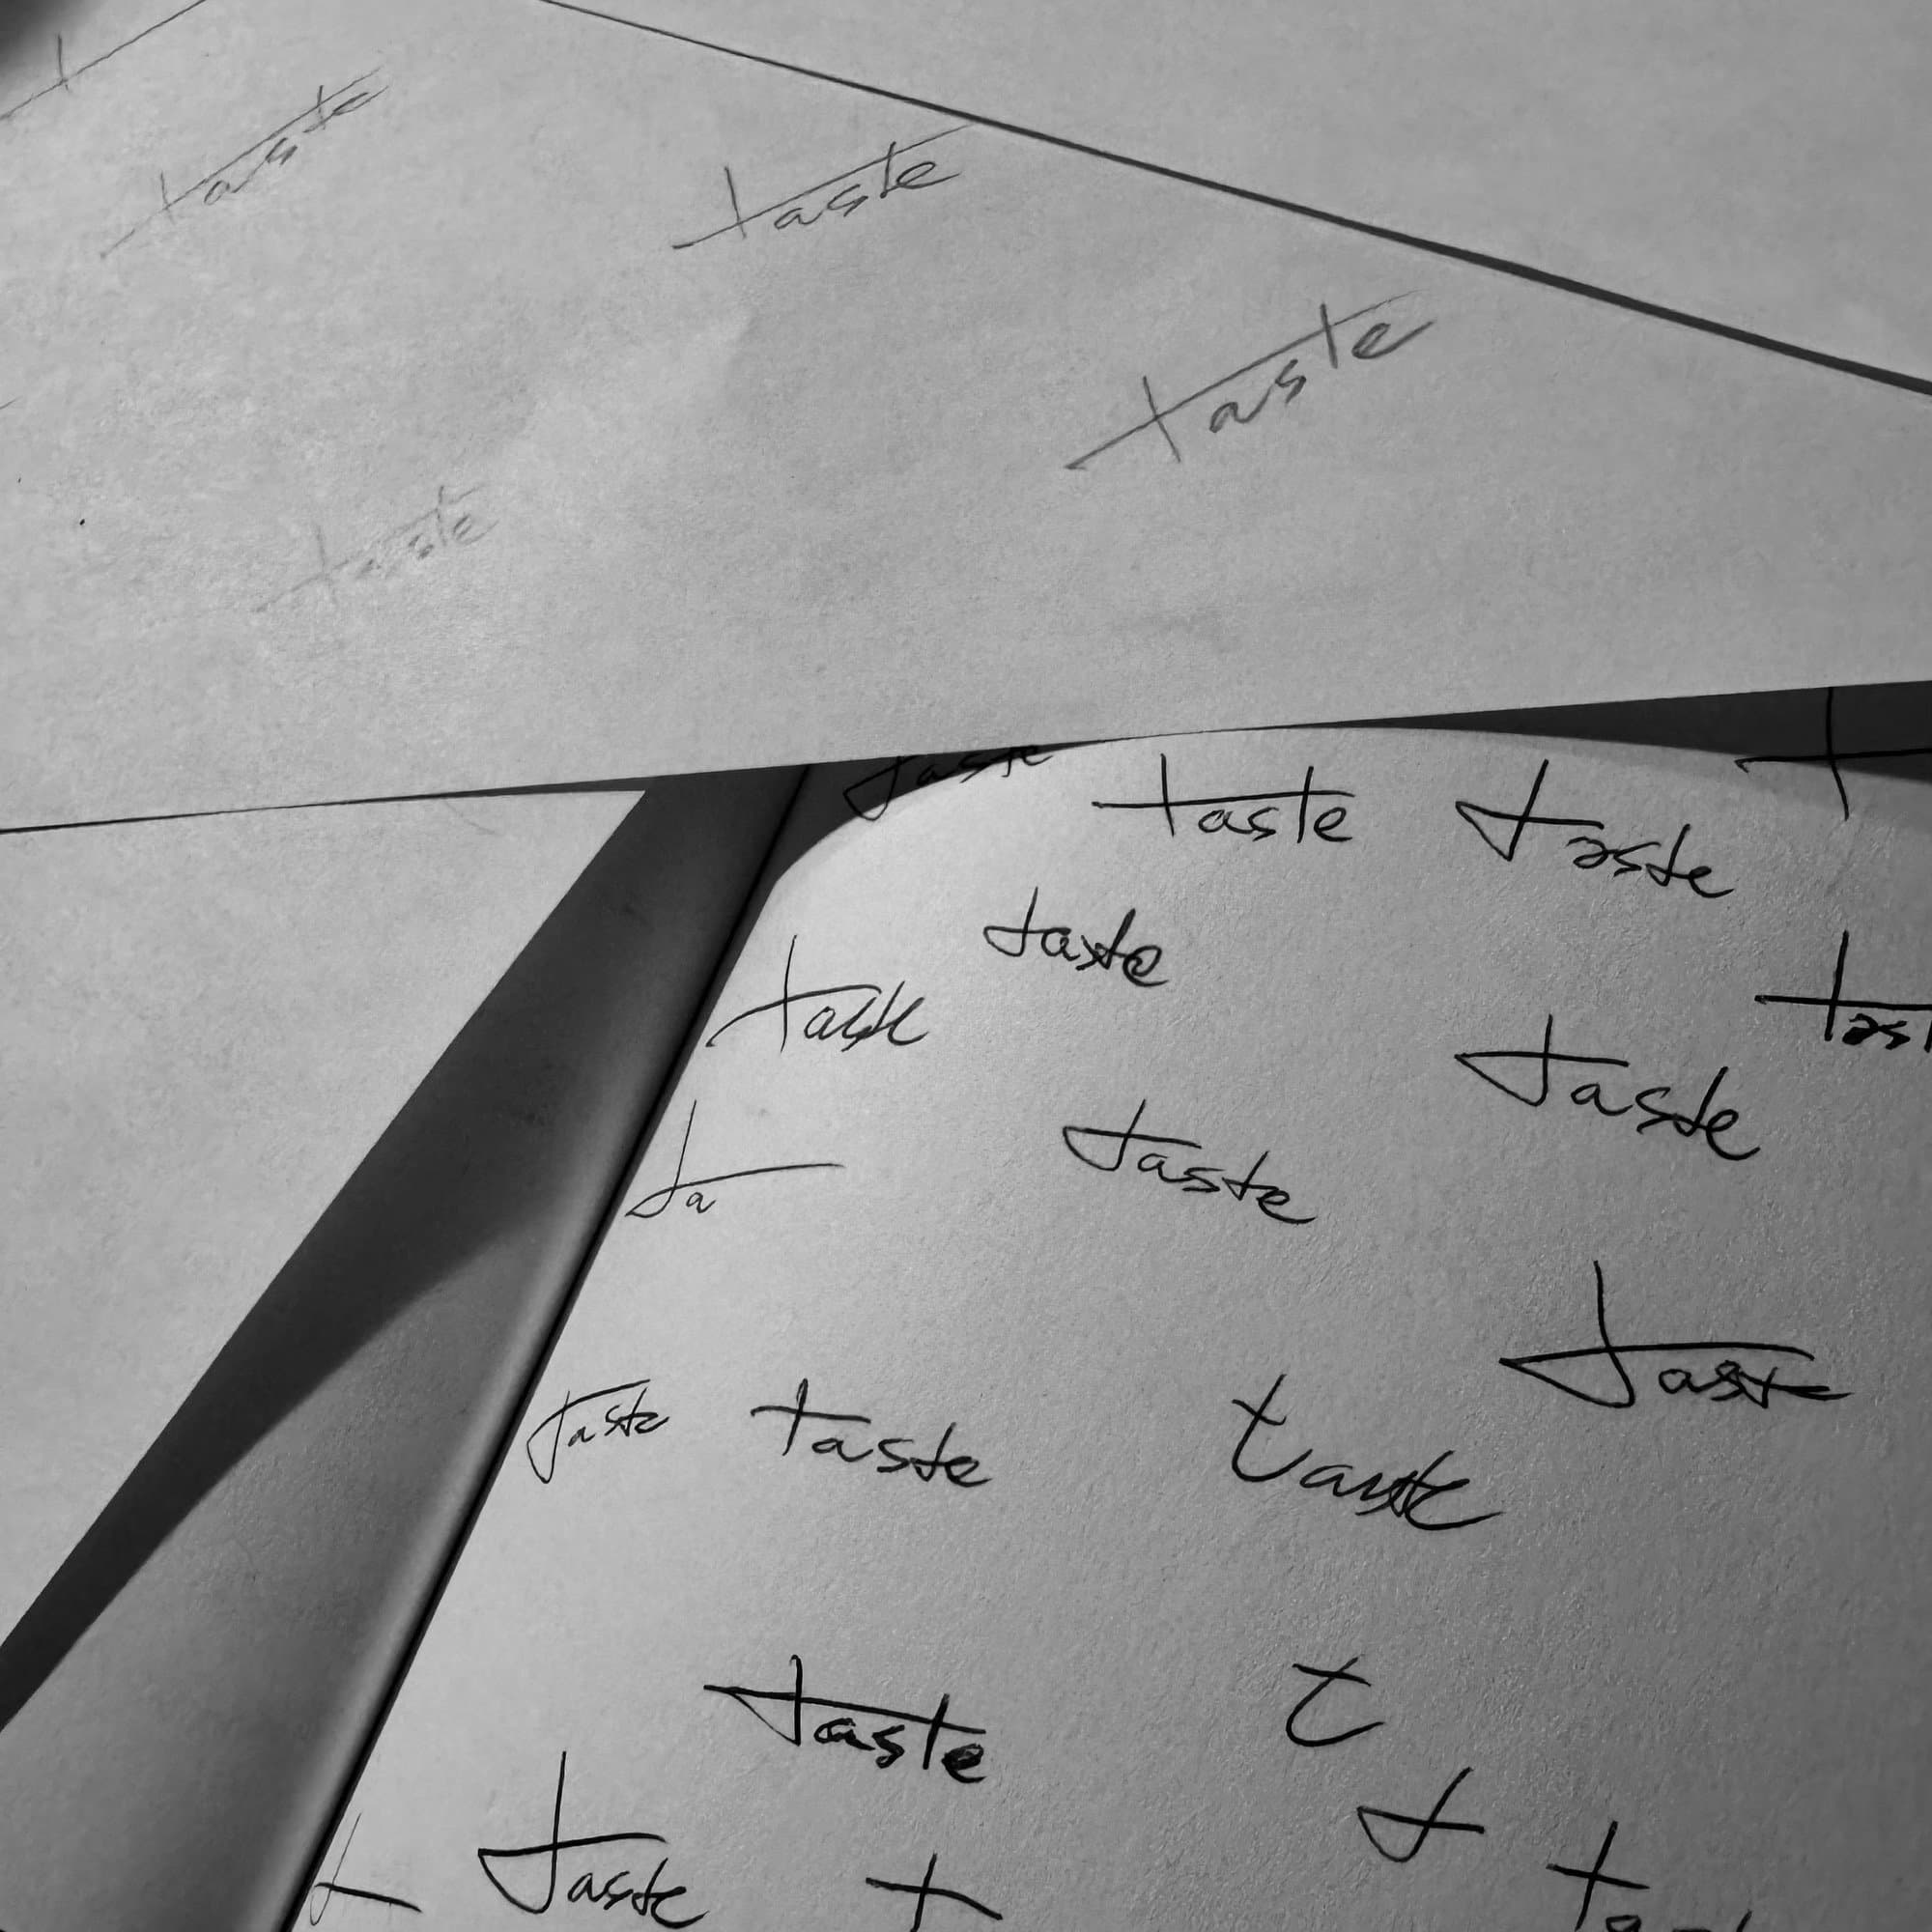 taste
taste
taste
taste
taste
taste
taste
taste
taste
taste
tast
taste
ta
taste
taste
taste
taste
taste
taste
t
taste
t
taste
t
t